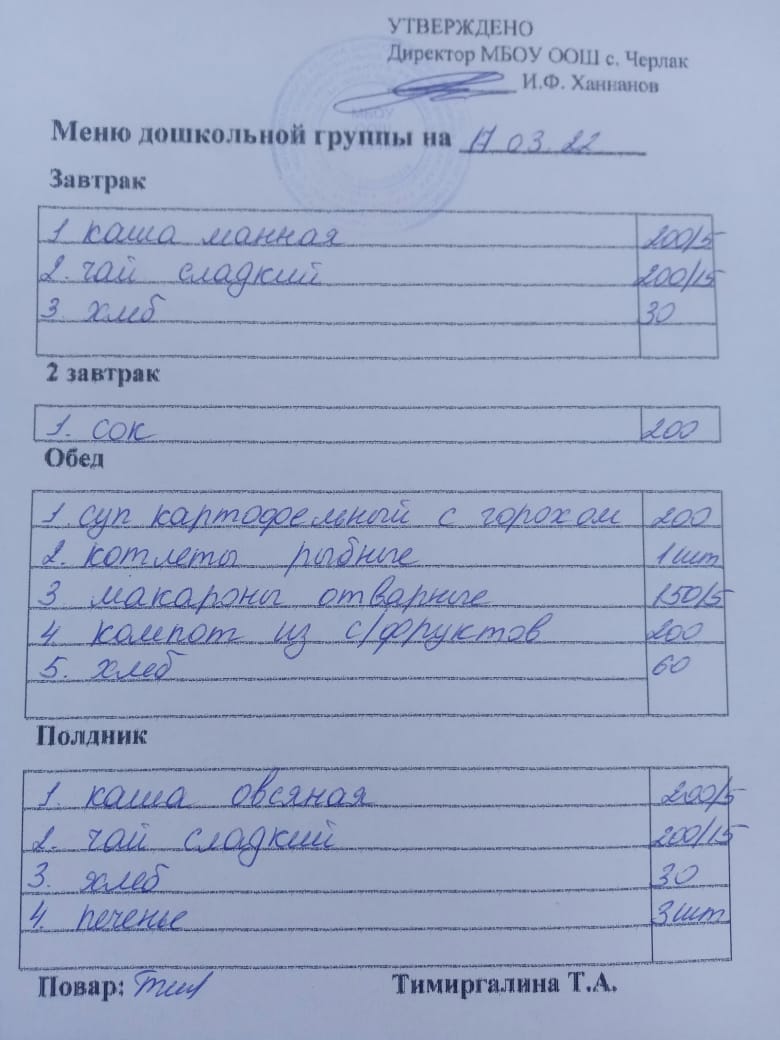 УТВЕРЖДЕНО
Директор МБОУ ООШ с. Черлак
И.Ф. Ханнанов
МБОУ
Меню дошкольной группы на 17 03. 22
Завтрак
1 каша манная 200/5
2. чай сладкий 200/15
3. хлеб 30
2 завтрак
1. сок 200
Обед
1. суп картофельный с горохом 200
2. котлеты рыбные 1 шт
3 макароны отварные 150/5
4. компот из с/фруктов 200
5. хлеб 60
Полдник
1. каша овсяная 200/5
2. чай сладкий 200/15
3. хлеб 30
4. печенье 3 шт
Повар: Тимиргалина Т.А.